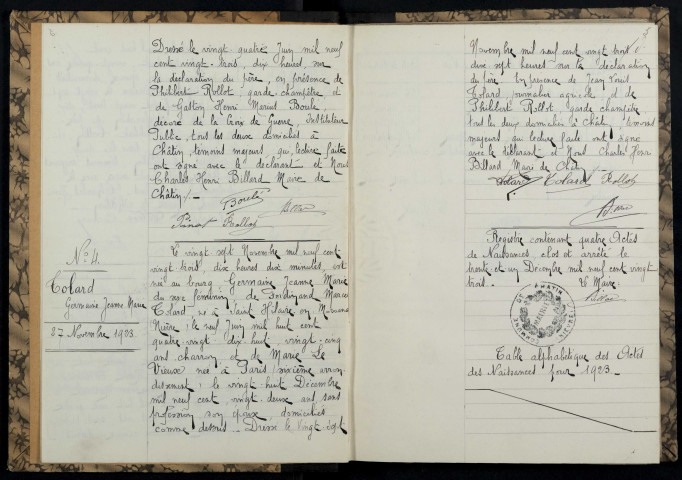 Dressé le vingt-quatre Juin mil neuf
cent vingt-trois, dix heures, sur
la déclaration du père, en présence de
Philibert Rollot, garde-champêtre et
de Gaston Henri Marius Borelé,
décoré de la Croix de Guerre, Instituteur
Public, tous les deux domiciliés à
Châtin, témoins majeurs qui, lecture faite
ont signé avec le déclarant et Nous
Charles Henri Billard Maire de
Châtin /-
Borelé
Rollot
N° 4.
Colard
Germaine Jeanne Marie
27 Novembre 1923.
Le vingt sept Novembre mil neuf cent
vingt trois, dix heures dix minutes, est
née au bourg : Germaine Jeanne Marie
du sexe féminin, de Ferdinand Marcel
Colard né à Saint Hilaire en
Nièvre le neuf Juin mil huit cent
quatre-vingt-dix-huit, vingt-cinq
ans charron, et de Marie Le
Vieux née à Paris onzième arron-
dissement, le vingt-huit Décembre
mil neuf cent, vingt-deux ans, sans
profession, son épouse, domiciliés
comme dessus. Dressé le vingt-sept
Novembre mil neuf cent vingt trois
dix sept heures sur la déclaration
du père En présence de Jean Louis
Colard, journalier agricole et de
Philibert Rollot, garde champêtre
tous les deux domiciliés à Châtin, témoins
majeurs qui lecture faite ont signé
avec le déclarant et Nous Charles Henri
Billard, Maire de Châtin
Colard Colard Rollot
Registre contenant quatre Actes
de Naissances, clos et arrêté le
trente et un Décembre mil neuf cent vingt
trois. Le Maire :
MAIRIE
COMMUNE DE CHATIN (NIÈVRE)
Table alphabétique des Actes
des Naissances pour 1923 -